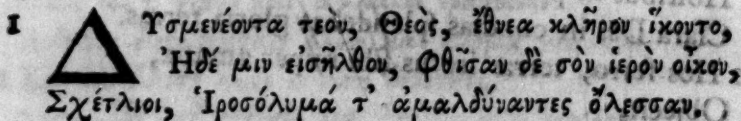 1 ΔΥσμενέοντα τεὸν, Θεὸς, ἔθνεα κλῆρον ἵκοντο,
Ἠδέ μιν εἰσῆλθον, Φθῖσαν δὲ σὸν ἱερὸν οἶκον,
Σχέτλιοι, Ἱροσόλυμά τ' ἀμαλδύναντες ὄλεσσαν.